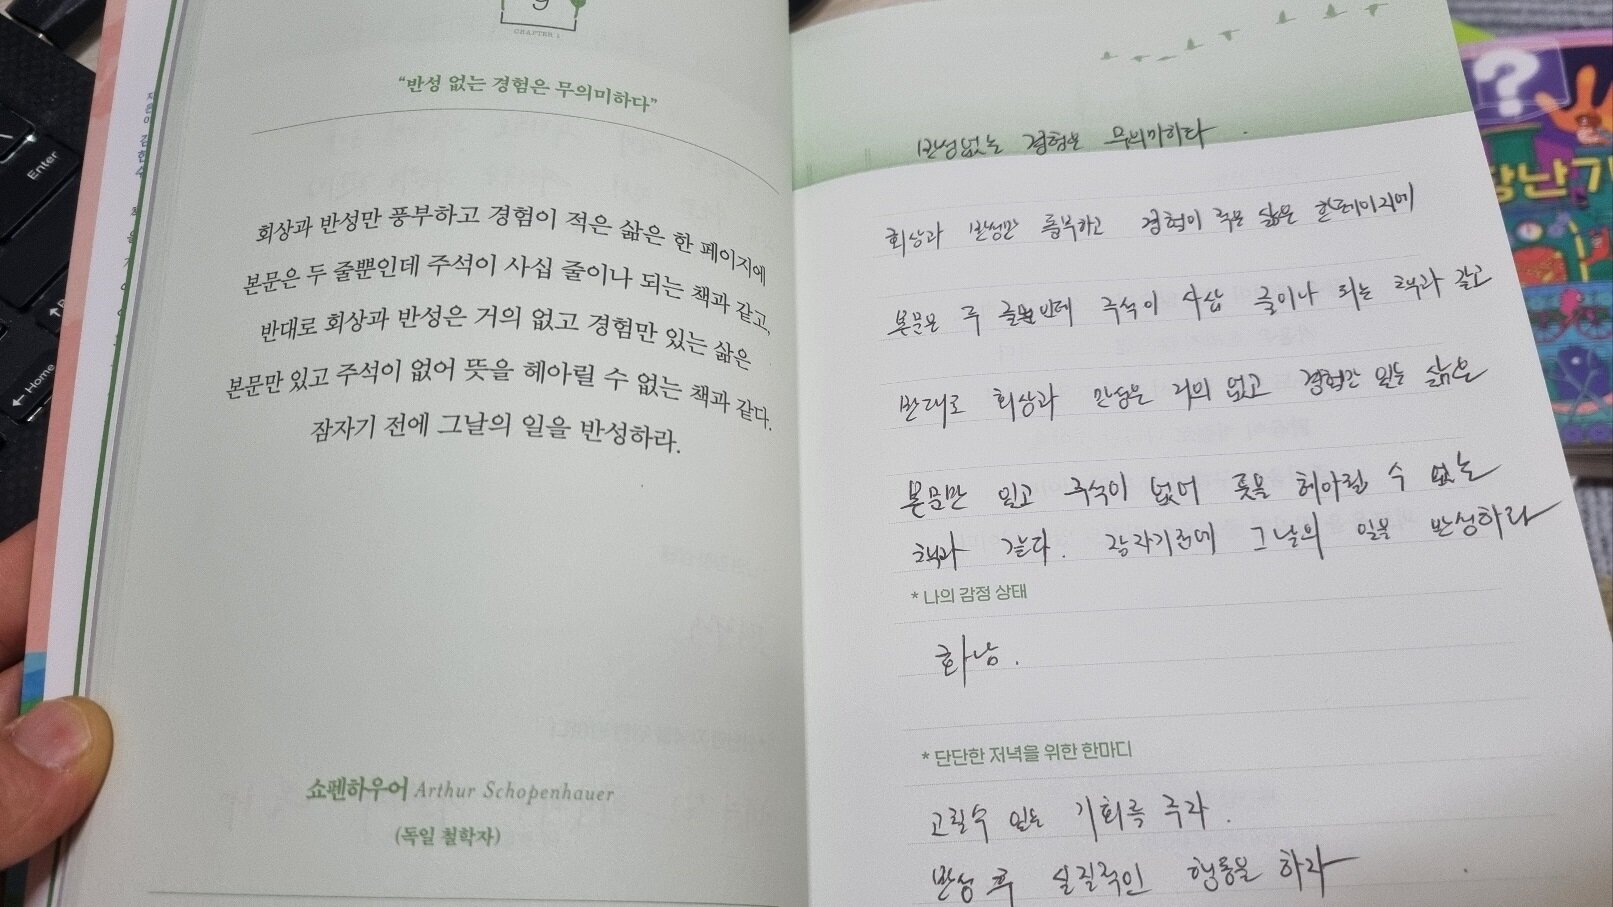 9
CHAPTER 1
“반성 없는 경험은 무의미하다”
회상과 반성만 풍부하고 경험이 적은 삶은 한 페이지에
본문은 두 줄뿐인데 주석이 사십 줄이나 되는 책과 같고,
반대로 회상과 반성은 거의 없고 경험만 있는 삶은
본문만 있고 주석이 없어 뜻을 헤아릴 수 없는 책과 같다.
잠자기 전에 그날의 일을 반성하라.
쇼펜하우어 Arthur Schopenhauer
(독일 철학자)
반성없는 경험은 무의미하다.
회상과 반성만 풍부하고 경험이 적은 삶은 한페이지에
본문은 두 줄뿐인데 주석이 사십 줄이나 되는 책과 같고
반대로 회상과 반성은 거의 없고 경험만 있는 삶은
본문만 있고 주석이 없어 뜻을 헤아릴 수 없는
책과 같다. 잠자기전에 그날의 일을 반성하라
* 나의 감정 상태
화남.
* 단단한 저녁을 위한 한마디
고칠수 있는 기회를 주라.
반성 후 실질적인 행동을 하라
Enter
Home
?
장난기